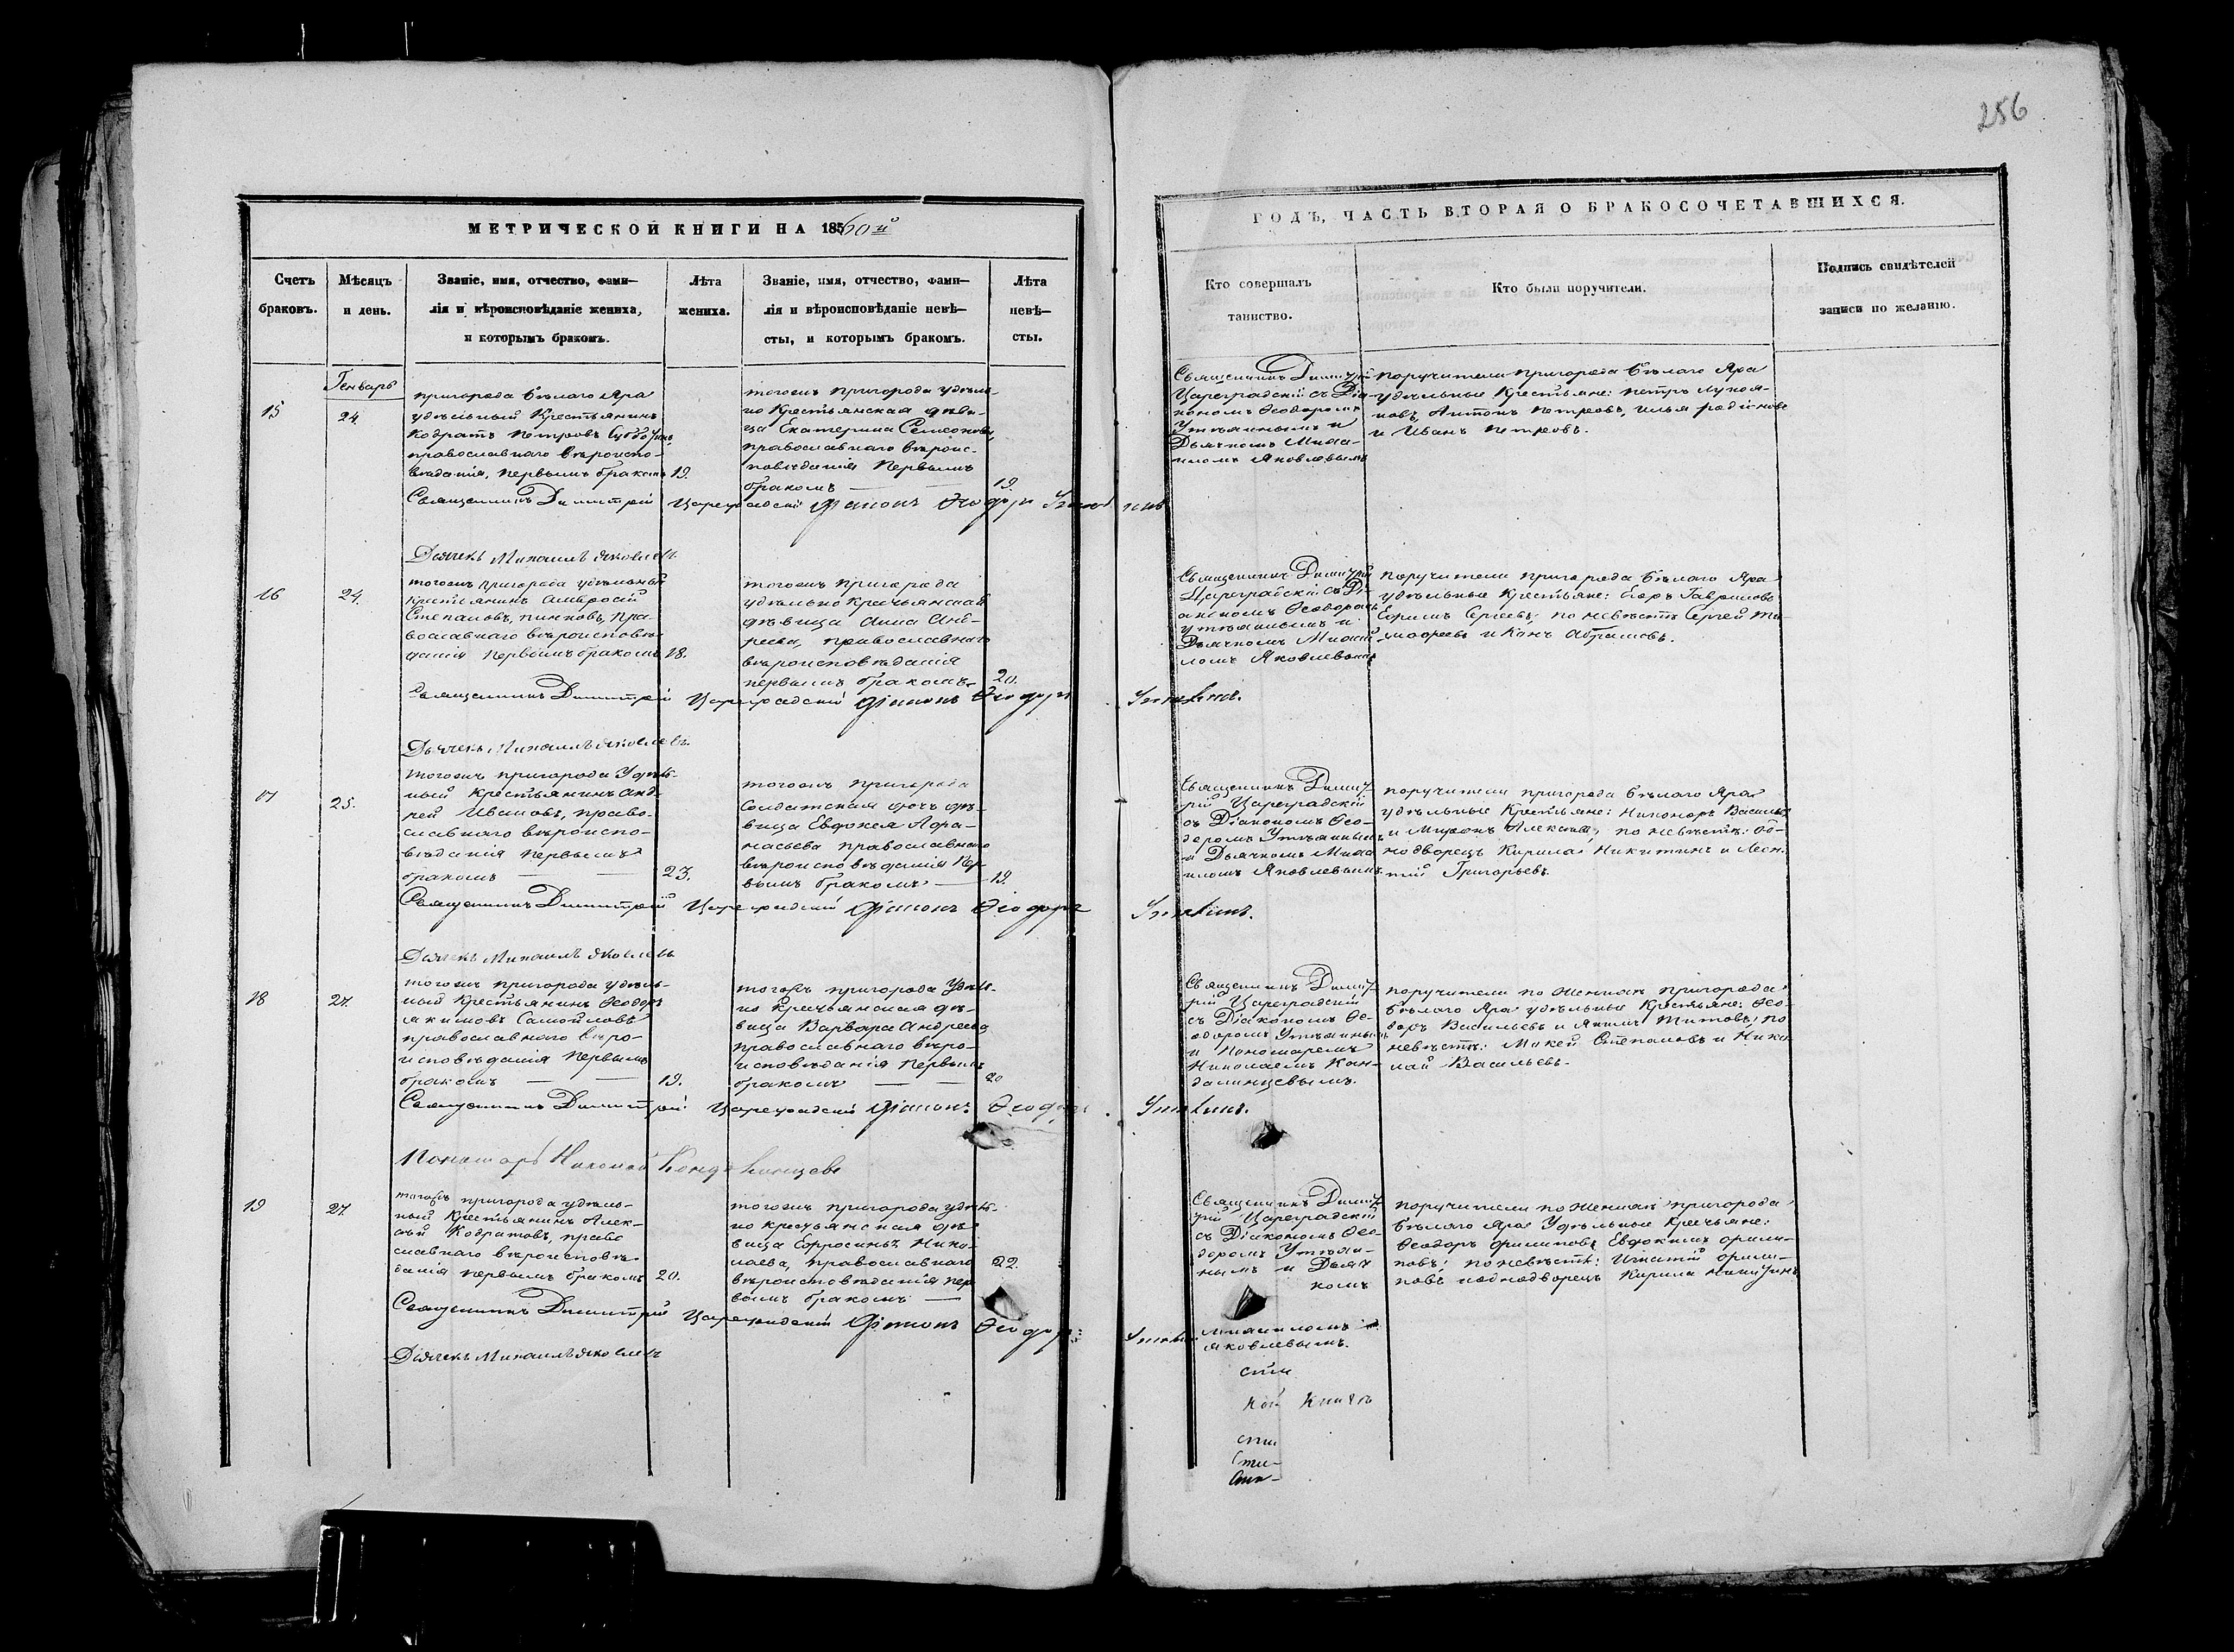 256
МЕТРИЧЕСКОЙ КНИГИ НА 1860й
ГОДЪ, ЧАСТЬ ВТОРАЯ О БРАКОСОЧЕТАВШИХСЯ.
Счетъ
браковъ.
Мѣсяцъ
и день.
Званіе, имя, отчество, фами-
лія и вѣроисповѣданіе жениха,
и которымъ бракомъ.
Лѣта
жениха.
Званіе, имя, отчество, фами-
лія и вѣроисповѣданіе невѣ-
сты, и которымъ бракомъ.
Лѣта
невѣ-
сты.
Кто совершалъ
таинство.
Кто были поручители.
Подпись свидѣтелей
записи по желанію.
Генварь
15
24
пригорода Бѣлаго Яра
удѣльный Крестьянинъ
Кодратъ Петровъ
православнаго вѣроиспо-
вѣданія, первымъ бракомъ
19.
тогожъ пригорода удѣль-
но Крестьянская дѣви-
ца Екатерина Семеонова,
православнаго вѣроис-
повѣданія первымъ
бракомъ —
19.
Священникъ Димитрій
Цареградскій съ Діа-
кономъ Ѳеодоромъ
Утѣхинымъ и
Дьячкомъ Миха-
иломъ Яковлевымъ
поручители пригорода Бѣлаго Яра
удѣльные Крестьяне: Петръ Лукоя-
новъ, Антонъ Петровъ, Илья Родіоновъ
и Иванъ Петровъ.
Священникъ Димитрій Цареградскій Діаконъ Ѳеодоръ
Дьячекъ Михаилъ Яковлевъ
16
24.
тогожъ пригорода удѣльный
Крестьянинъ Амвросій
Степановъ, пра-
вославнаго вѣроисповѣ-
данія первымъ бракомъ
18.
тогожъ пригорода
удѣльно Крестьянская
дѣвица Анна Анд-
реева, православнаго
вѣроисповѣданія
первымъ бракомъ
20.
Священникъ Димитрій
Цареградскій съ Ді-
акономъ Ѳеодоромъ
Утѣхинымъ и
Дьячкомъ Михаи-
ломъ Яковлевымъ
поручители пригорода Бѣлаго Яра
удѣльные Крестьяне: Гавриловъ
Ефимъ Сергѣевъ, по невѣстѣ Сергей Ти-
мофеевъ и Абрамовъ.
Священникъ Димитрій Цареградскій Діаконъ Ѳеодоръ Утѣхинъ.
Дьячекъ Михаилъ Яковлевъ.
17
25.
тогожъ пригорода Удѣль-
ный Крестьянинъ Анд-
рей Ивановъ, право-
славнаго вѣроиспо-
вѣданія первымъ
бракомъ —
23.
тогожъ пригорода
Солдатская дочь дѣ-
вица Евдокея Афа-
насьева православнаго
вѣроисповѣданія пер-
вымъ бракомъ —
19.
Священникъ Димит-
рій Цареградскій
съ Діакономъ Ѳео-
доромъ Утѣхинымъ
и Дьячкомъ Миха-
иломъ Яковлевымъ
поручители пригорода Бѣлаго Яра
удѣльные Крестьяне: Никоноръ Васильевъ
и Миронъ Алексѣевъ, по невѣстѣ: од-
нодворецъ Кирила Никитинъ и Леон-
тій Григорьевъ.
Священникъ Димитрій Цареградскій Діаконъ Ѳеодоръ Утѣхинъ.
Дьячекъ Михаилъ Яковлевъ
18
27.
тогожъ пригорода удѣль-
ный Крестьянинъ Ѳеодоръ
Якимовъ Самойловъ
православнаго вѣро-
исповѣданія первымъ
бракомъ —
19.
тогожъ пригорода Удѣль-
но Крестьянская дѣ-
вица Варвара Андреева
православнаго вѣро-
исповѣданія первымъ
бракомъ —
20
Священникъ Димит-
рій Цареградскій
съ Діакономъ Ѳе-
одоромъ Утѣхинымъ
и Пономаремъ
Николаемъ Кан-
далинцевымъ.
поручители по женихѣ пригорода
Бѣлаго Яра удѣльные Крестьяне: Ѳео-
доръ Васильевъ и Якимъ Титовъ; по
невѣстѣ: Мокей Степановъ и Нико-
лай Васильевъ.
Священникъ Димитрій Цареградскій Діаконъ Ѳеодоръ Утѣхинъ.
Пономарь Николай Кондалинцевъ
19
27.
тогожъ пригорода удѣль-
ный Крестьянинъ Алек-
сѣй Кодратовъ, право
славнаго вѣроисповѣ-
данія первымъ бракомъ
20.
тогожъ пригорода удѣль-
но крестьянская дѣ-
вица Ефросинья Нико-
лаева, православнаго
вѣроисповѣданія пер
вымъ бракомъ —
22.
Священникъ Димит-
рій Цареградскій
съ Діакономъ Ѳео-
доромъ Утѣхи-
нымъ и Дьяч
комъ
Михаиломъ
Яковлевымъ.
поручители по женихѣ пригорода
Бѣлаго Яра Удѣльные Крестьяне:
Ѳеодоръ Филиповъ Евдокимъ Фили-
повъ; по невѣстѣ: Игнатій Фили-
повъ и однодворецъ Кирила Никитинъ
Священникъ Димитрій Цареградскій Діаконъ Ѳеодоръ
Дьячекъ Михаилъ Яковлевъ